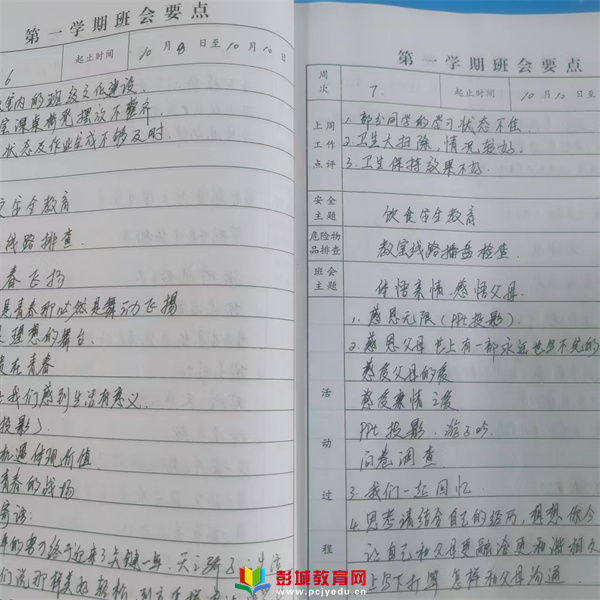 第一学期班会要点
6
起止时间
10月8日至10月10日
室内的班级文化建设.
室课桌椅凳摆设不整齐.
状态及作业完成不够及时.
安全教育
线路排查.
春飞扬
是青春那必然是舞动飞扬
是理想的舞台.
责在青春
让我们感到生活有意义.
投影)
机遇体现价值.
青春的战场
寄语:
第一学期班会要点
周次
7
起止时间
10月10日至
上周工作点评
1.部分同学的学习状态不佳
2.卫生大扫除,情况较好.
3.卫生保持效果不好.
安全主题
饮食安全教育
危险物品排查
教室线路插座检查.
班会主题
体悟亲情.感悟父母.
活动过程
1.感恩无限(PPt投影).
2.感恩父母 世上有一部永远也写不完的
感受父母的爱
感受亲情之爱
PPt投影.游子吟.
问卷调查.
3.我们一起回忆.
4.思考请结合自己的经历,想想你今
让自己和父母更融洽更和谐相
怎样和父母沟通.
彭城教育网
www.pcjyedu.cn